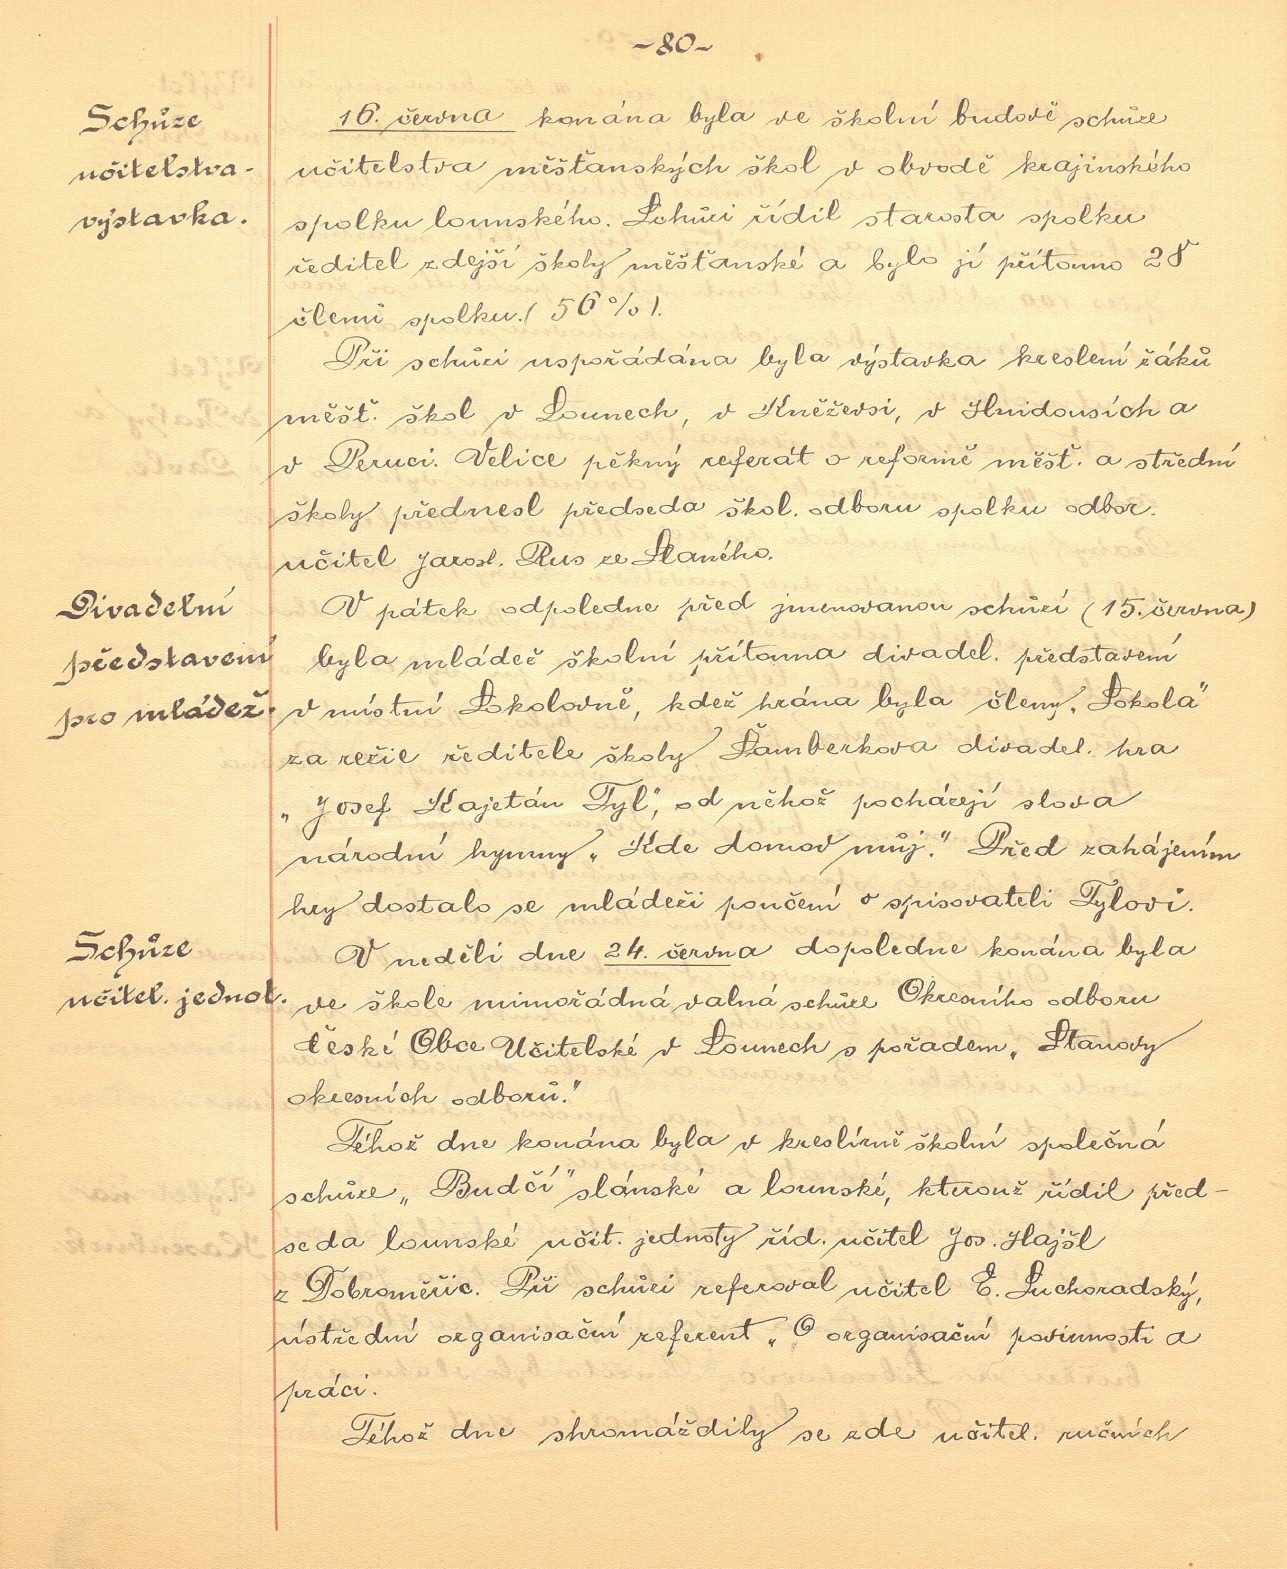 -80-
Schůze
učitelstva -
výstavka.
16. června konána byla ve školní budově schůze
učitelstva měšťanských škol v obvodě krajinského
spolku lounského. Schůzi řídil starosta spolku
ředitel zdejší školy měšťanské a bylo jí přítomno 28
členů spolku. (56%).
Při schůzi uspořádána byla výstavka kreslení žáků
měšť. škol v Lounech, v Kněževsi, v Hnidousích a
v Peruci. Velice pěkný referát o reformě měšť. a střední
školy přednesl předseda škol. odboru spolku odbor.
učitel Jarosl. Rus ze Slaného.
Divadelní
představení
pro mládež.
V pátek odpoledne před jmenovanou schůzí (15. června)
byla mládež školní přítomna divadel. představení
v místní Sokolovně, kdež hrána byla členy „Sokola"
za režie ředitele školy Šamberkova divadel. hra
„Josef Kajetán Tyl", od něhož pocházejí slova
národní hymny „Kde domov můj." Před zahájením
hry dostalo se mládeži poučení o spisovateli Tylovi.
Schůze
učitel. jednot.
V neděli dne 24. června dopoledne konána byla
ve škole mimořádná valná schůze Okresního odboru
České Obce Učitelské v Lounech s pořadem „Stanovy
okresních odborů."
Téhož dne konána byla v kreslírně školní společná
schůze „Budčí" slánské a lounské, kterouž řídil před-
seda lounské učit. jednoty říd. učitel Jos. Hajšl
z Dobroměřic. Při schůzi referoval učitel E. Suchoradský,
ústřední organisační referent „O organisační povinnosti a
práci.
Téhož dne shromáždily se zde učitel. ručních